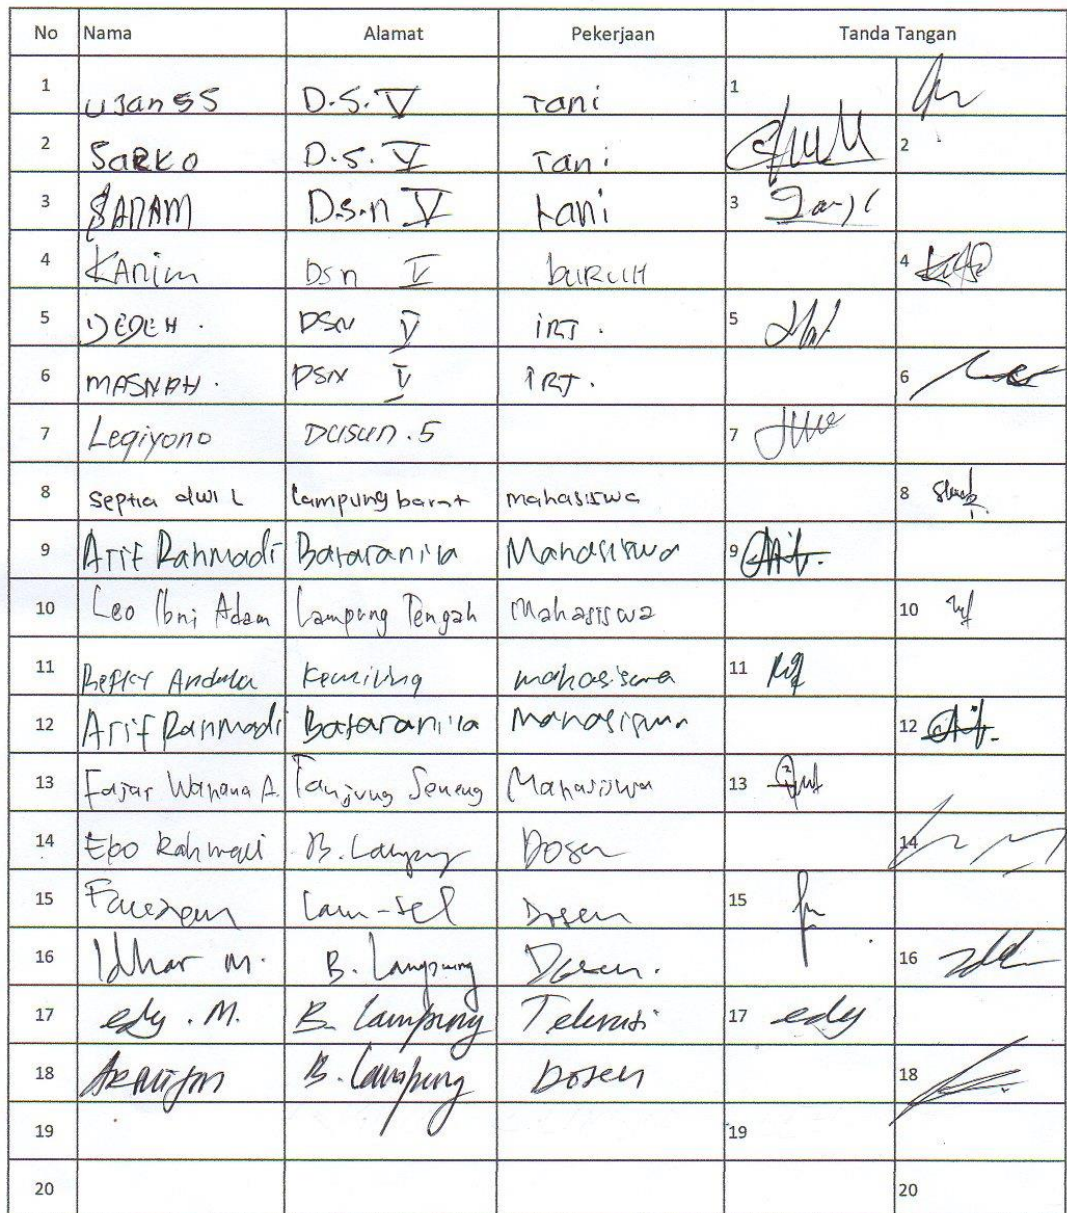 No Nama Alamat Pekerjaan Tanda Tangan
1 D.S. V Tani 1
2 SARKO D.S. V Tani 2
3 SANAM D.s.n V tani 3
4 KAnim Dsn V buRUH 4
5 DEDEH . DSN V iRT . 5
6 MASNAH . DSN V IRT . 6
7 Legiyono Dusun . 5 7
8 septia dwi L lampung barat mahasiswa 8
9 Arif Rahmadi Bataranila Mahasiswa 9
10 Leo Ibni Adam Lampung Tengah Mahasiswa 10
11 Kemiling mahasiswa 11
12 Arif Rahmadi Bataranila Mahasiswa 12
13 Fajar Tanjung Seneng Mahasiswa 13
14 B. Lampung Dosen 14
15 Lam-Sel Dosen 15
16 Idhar M. B. Lampung Dosen . 16
17 edy . M. B. Lampung 17 edy
18 B. Lampung Dosen 18
19 19
20 20